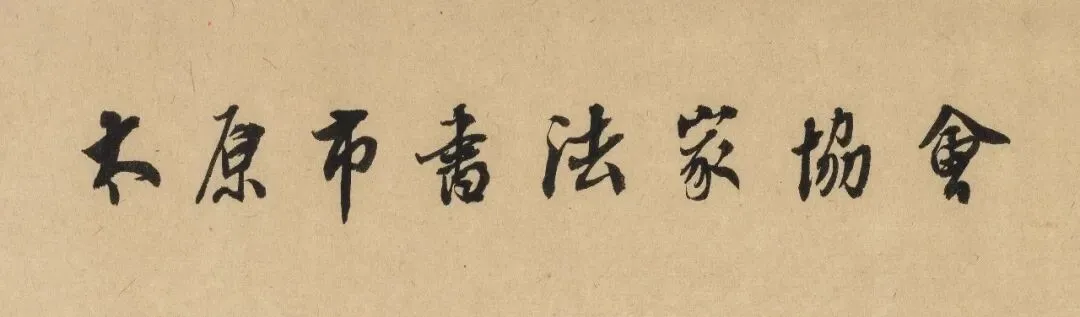 太原市書法家協會